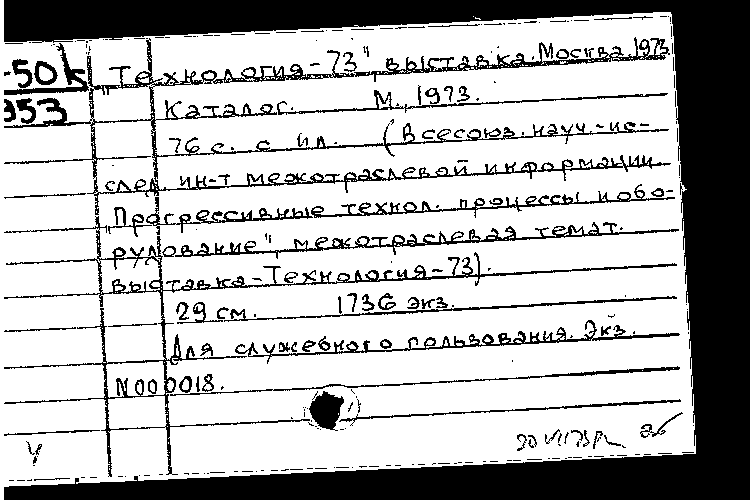 -50к
953
„Технология-73", выставка. Москва. 1973
Каталог. М., 1973.
76 с. с ил. (Всесоюз. науч.-ис-
след. ин-т межотраслевой информации
„Прогрессивные технол. процессы и обо-
рудование", межотраслевая темат.
выставка-Технология-73).
29 см. 1736 экз.
Для служебного пользования. Экз.
N000018.
ч